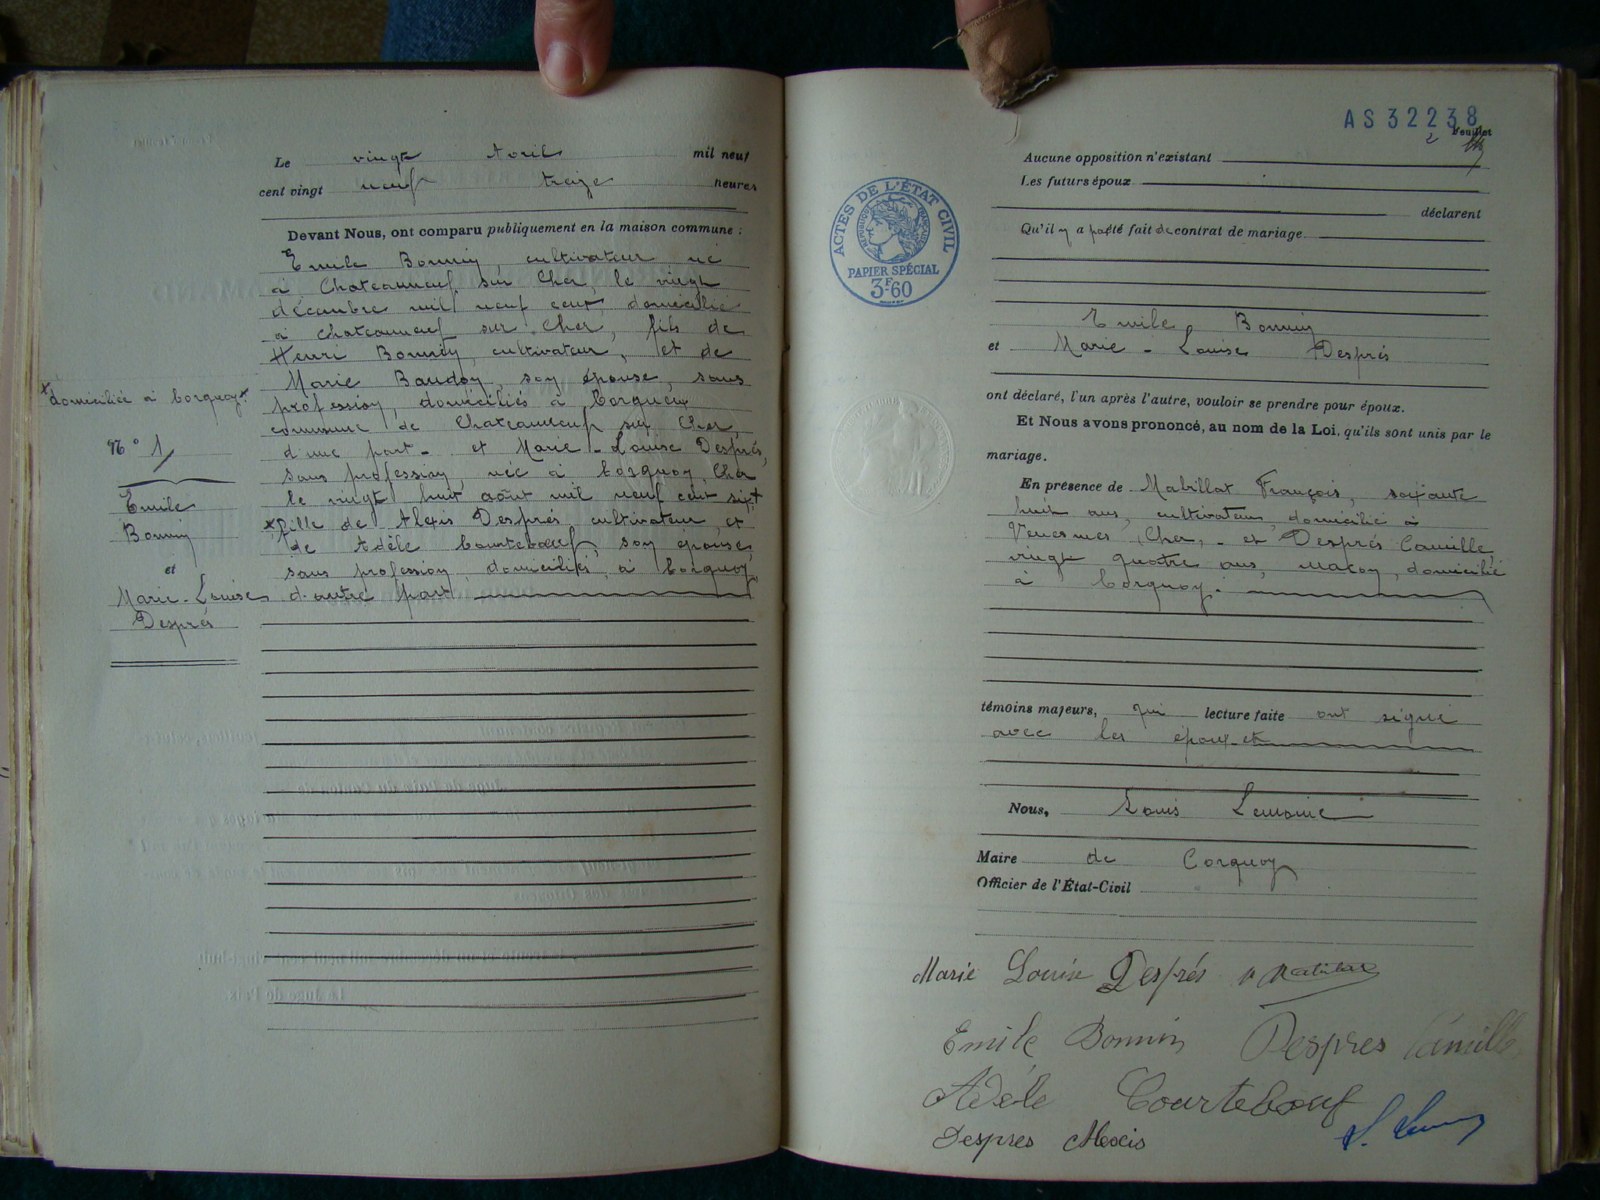 Le vingt Avril mil neuf
cent vingt neuf treize heures
Devant Nous, ont comparu publiquement en la maison commune :
Emile Bonnin, cultivateur né
à Chateauneuf sur Cher, le vingt
décembre mil neuf cent, domicilié
à Chateauneuf sur Cher, fils de
Henri Bonnin, cultivateur, et de
Marie Baudon, son épouse, sans
profession, domiciliés à
commune de Chateauneuf sur Cher,
d'une part - et Marie-Louise Després,
sans profession, née à Corquoy, Cher
le vingt huit août mil neuf cent six,
fille de Alexis Després, cultivateur, et
de Adèle Courtebœuf, son épouse,
sans profession, domiciliés, à Corquoy
d'autre part
domiciliée à Corquoy
N° 1
Emile
Bonnin
et
Marie-Louise
Després
AS 32238
Feuillet
2
ACTES DE L'ÉTAT CIVIL
RÉPUBLIQUE FRANÇAISE
PAPIER SPÉCIAL
3F60
Aucune opposition n'existant
Les futurs époux
déclarent
Qu'il n'y a pas été fait de contrat de mariage.
Emile Bonnin
et Marie-Louise Després
ont déclaré, l'un après l'autre, vouloir se prendre pour époux.
Et Nous avons prononcé, au nom de la Loi, qu'ils sont unis par le
mariage.
En présence de Mabillat François, soixante
huit ans, cultivateur, domicilié à
Venesmes, Cher, - et Després Camille,
vingt quatre ans, maçon, domicilié
à Corquoy.
témoins majeurs, qui lecture faite ont signé
avec les époux et
Nous, Louis Lemoine
Maire de Corquoy
Officier de l'État-Civil
Marie Louise Després
Emile Bonnin Despres Camille
Adèle Courtebœuf
Despres Alexis